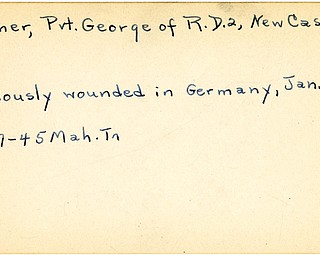 ner, Pvt. George of R.D.2, New Cas
ously wounded in Germany, Jan.
7-45 Mah. Tn